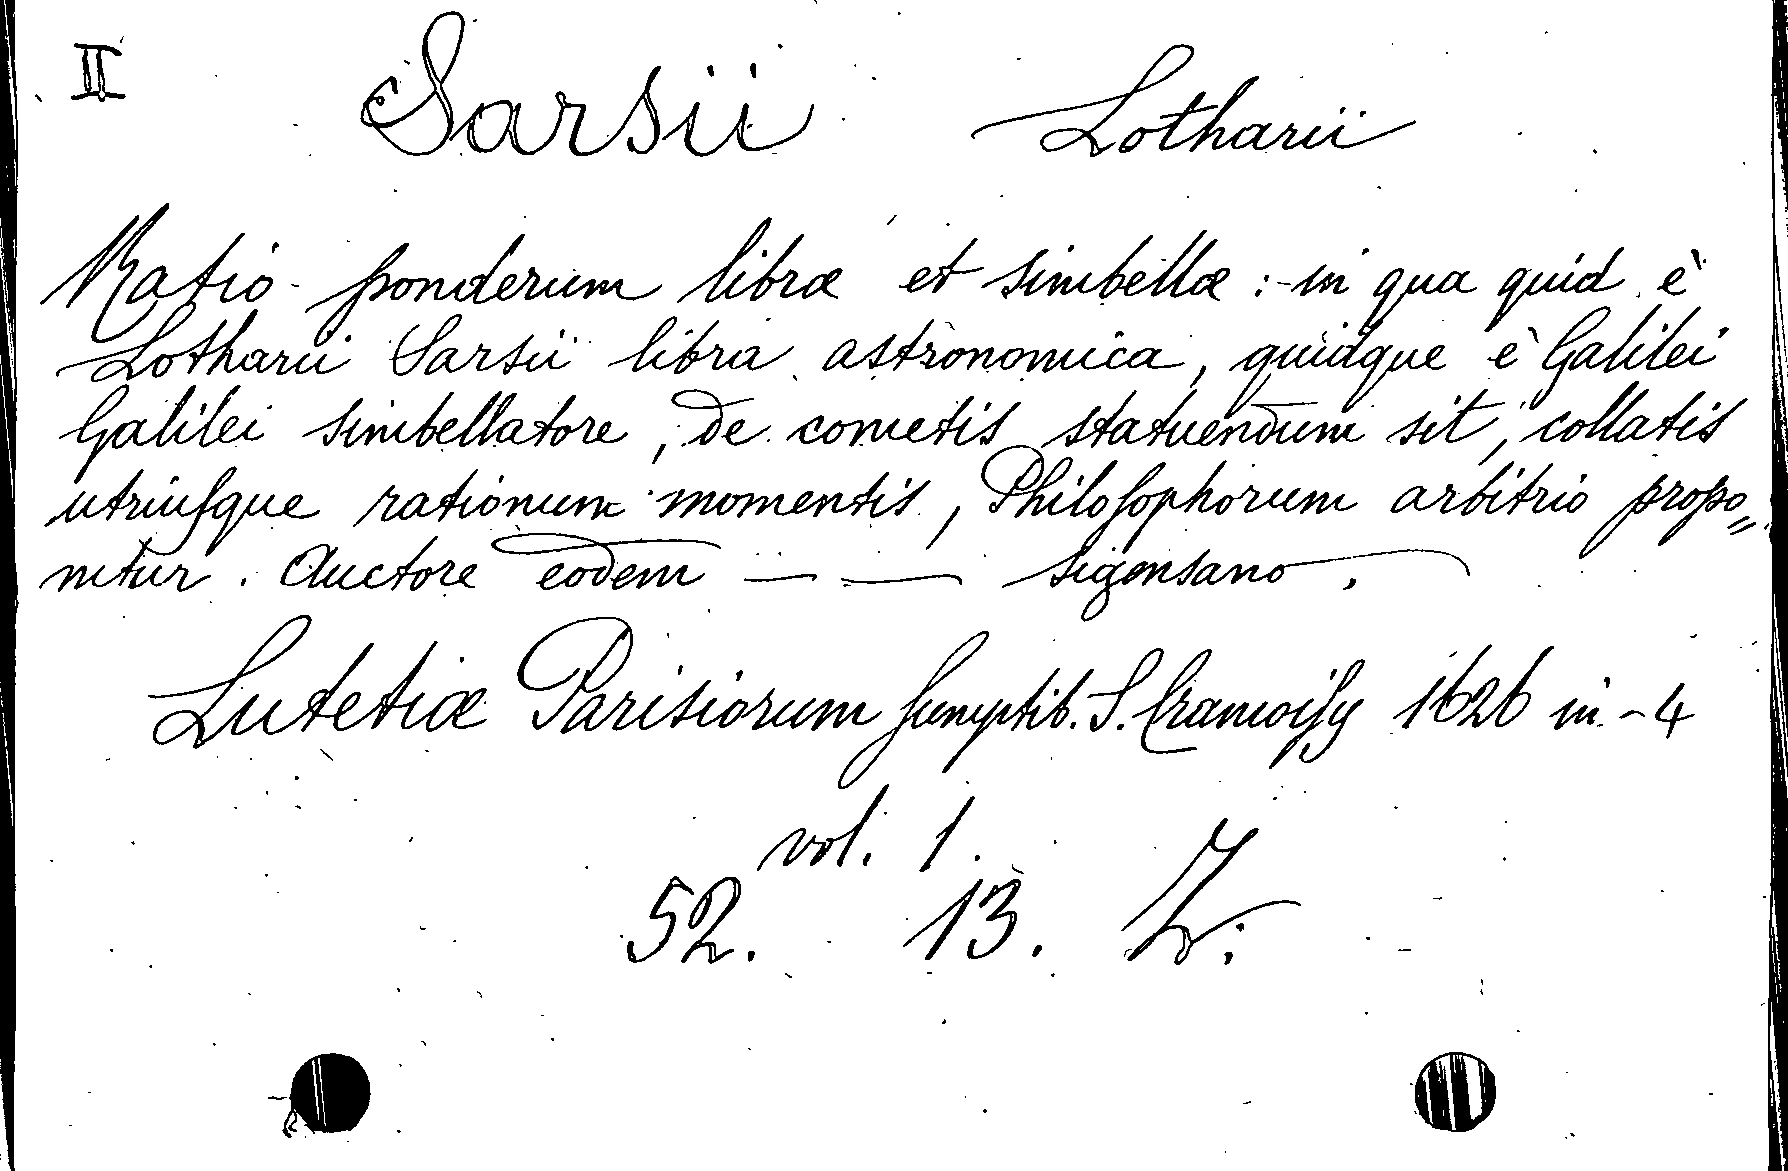 II Sarsii Lotharii
Ratio ponderum libræ et simbellæ : in qua quid è
Lotharii Sarsii libra astronomica, quidque è Galilei
Galilei simbellatore, de cometis statuendum sit, collatis
utriuſque rationum momentis, Philoſophorum arbitrio propo„
nitur. Auctore eodem — — sigensano.
Lutetiæ Parisiorum ſumptib. S. Cramoiſy 1626 in-4
vol. 1.
52. 13. Z.